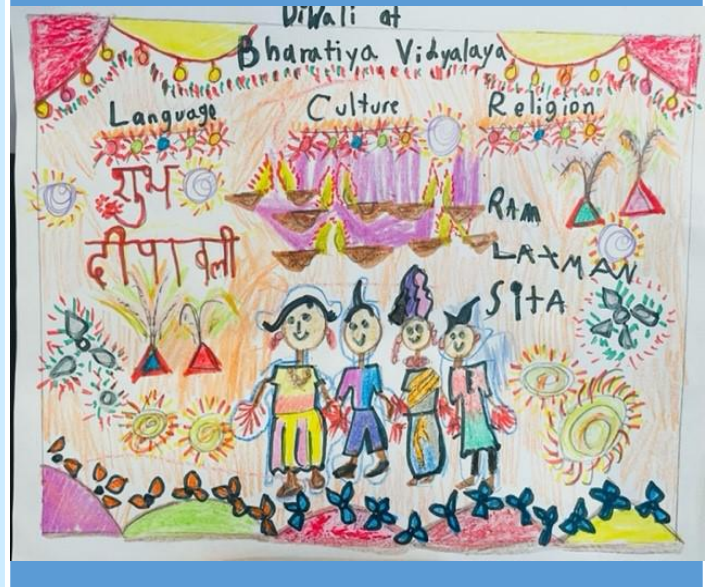 Diwali at
Bharatiya Vidyalaya
Language Culture Religion
शुभ
दीपावली
RAM
LAXMAN
SitA